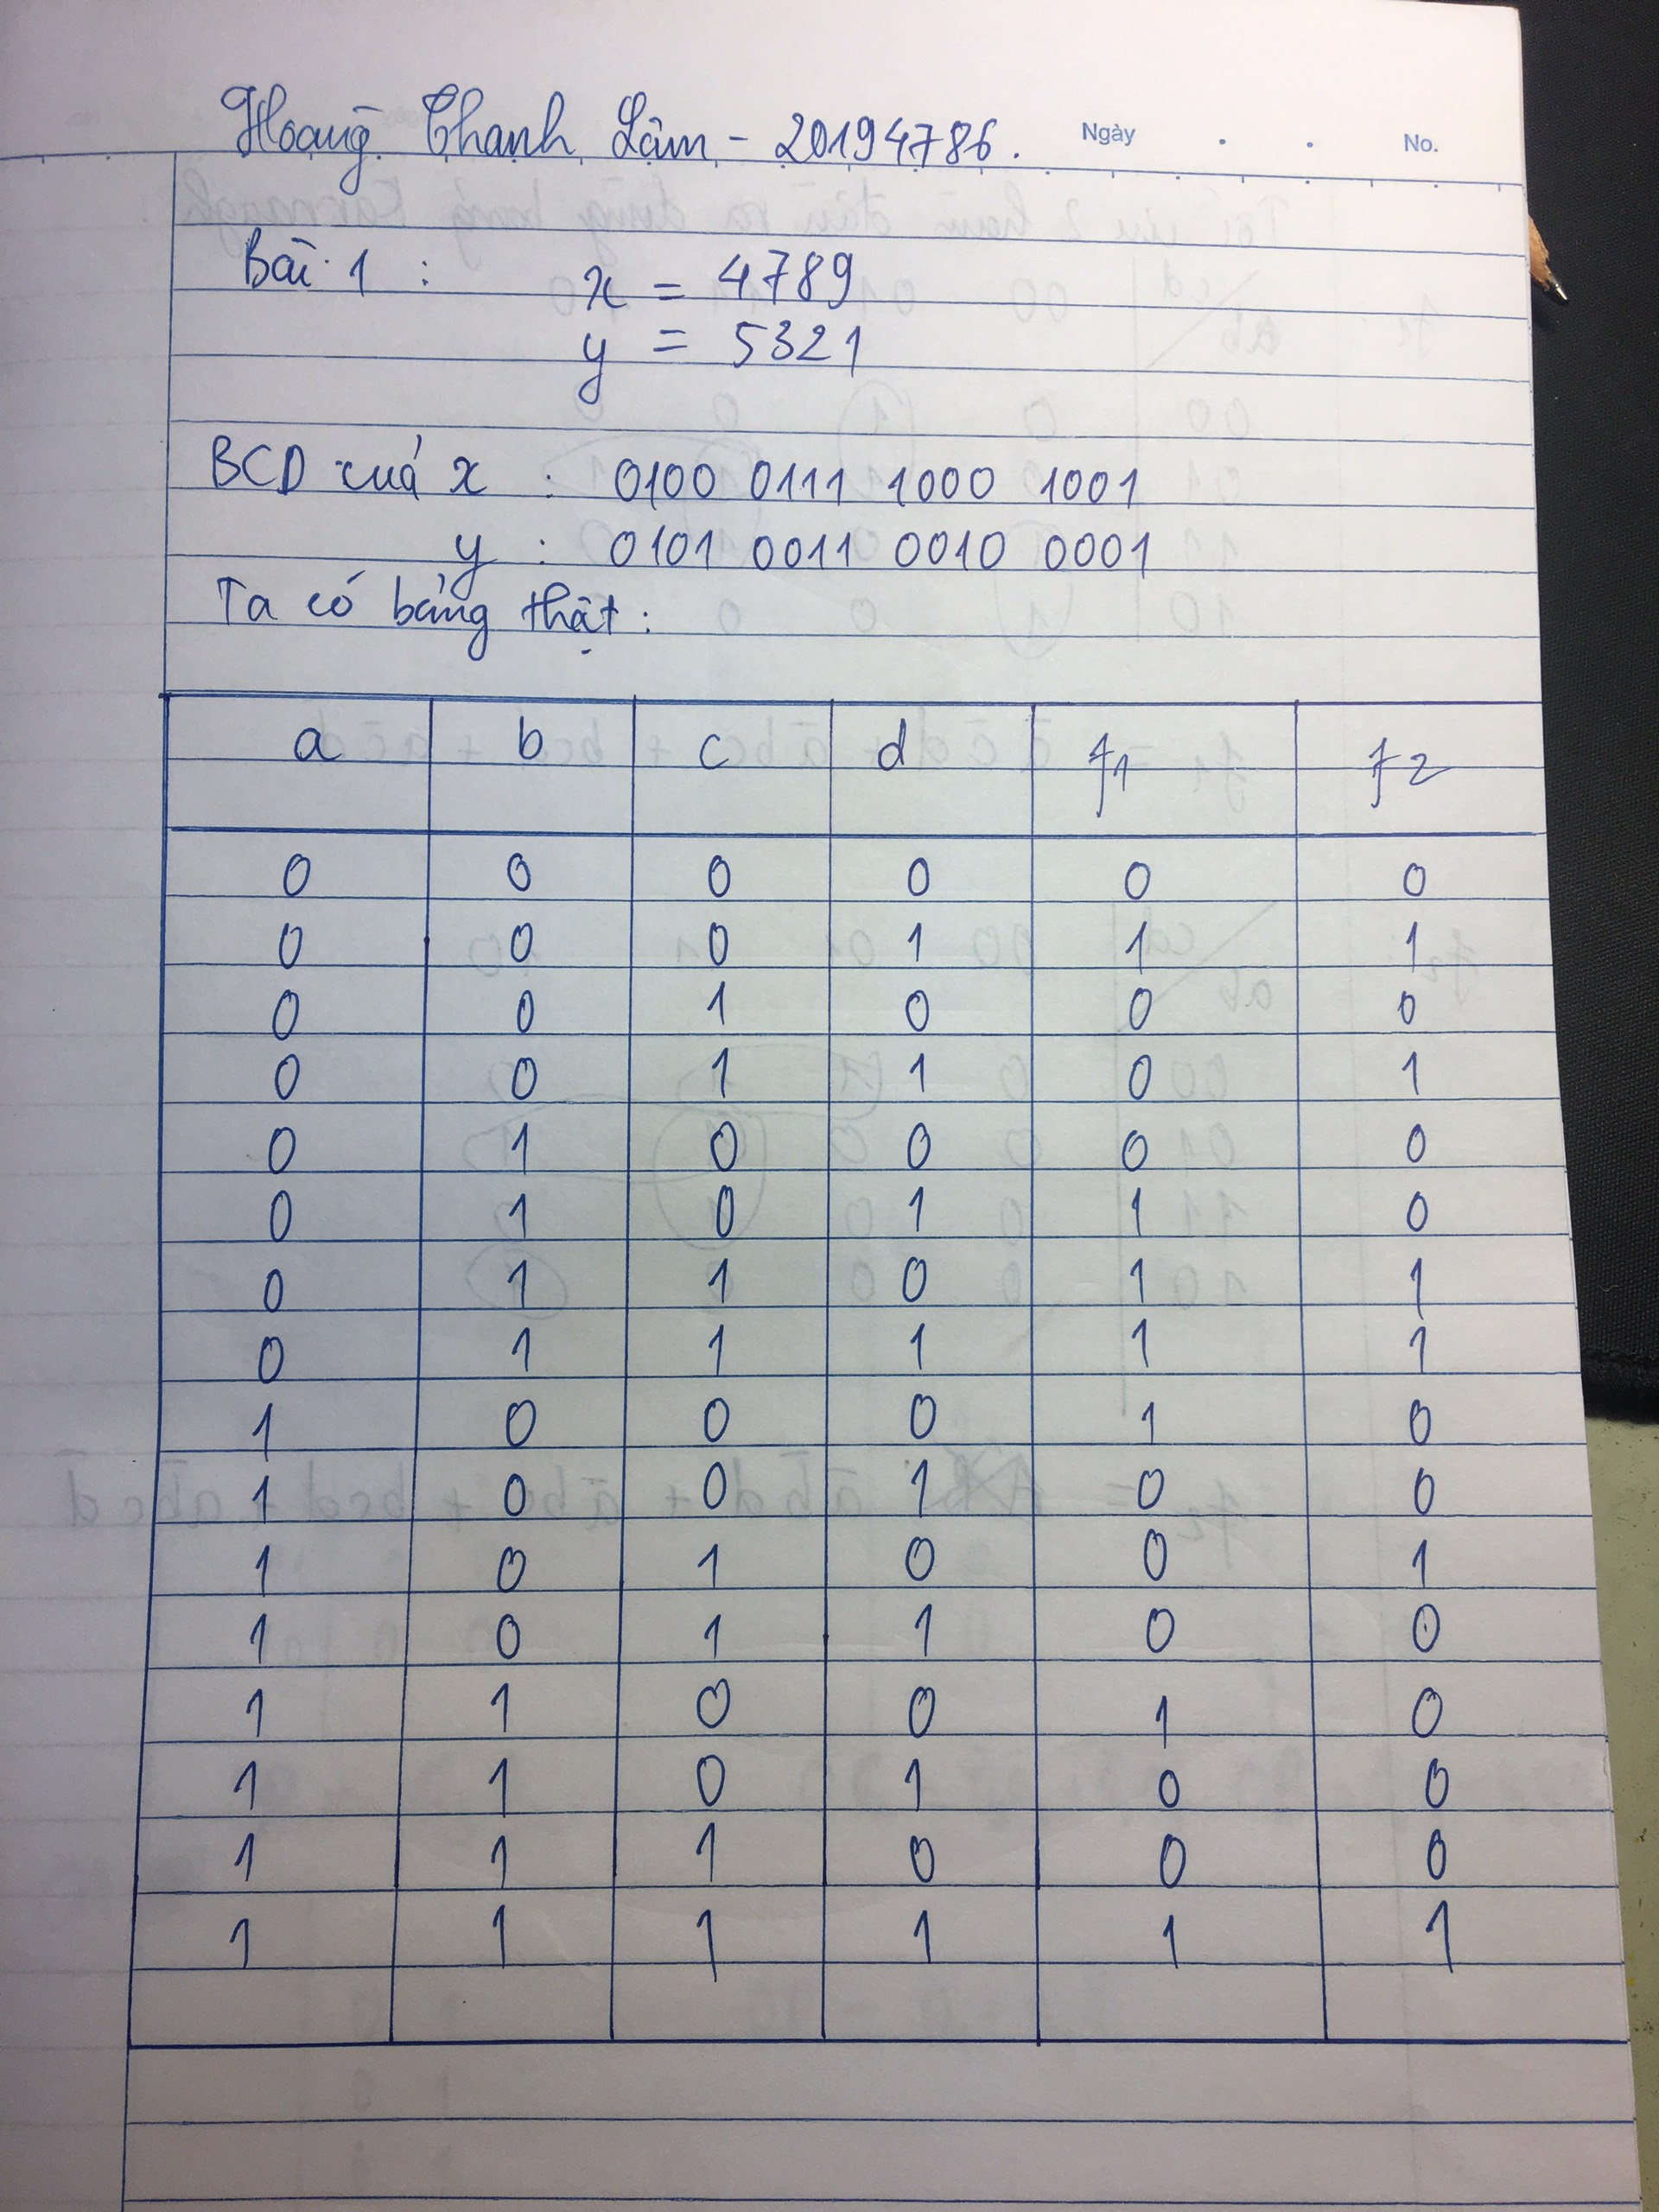 Hoàng Thanh Lâm - 20194786.
Ngày . . No.
Bài 1 : x = 4789
y = 5321
BCD cuả x : 0100 0111 1000 1001
y : 0101 0011 0010 0001
Ta có bảng thật :
a b c d f1 f2
0 0 0 0 0 0
0 0 0 1 1 1
0 0 1 0 0 0
0 0 1 1 0 1
0 1 0 0 0 0
0 1 0 1 1 0
0 1 1 0 1 1
0 1 1 1 1 1
1 0 0 0 1 0
1 0 0 1 0 0
1 0 1 0 0 1
1 0 1 1 0 0
1 1 0 0 1 0
1 1 0 1 0 0
1 1 1 0 0 0
1 1 1 1 1 1